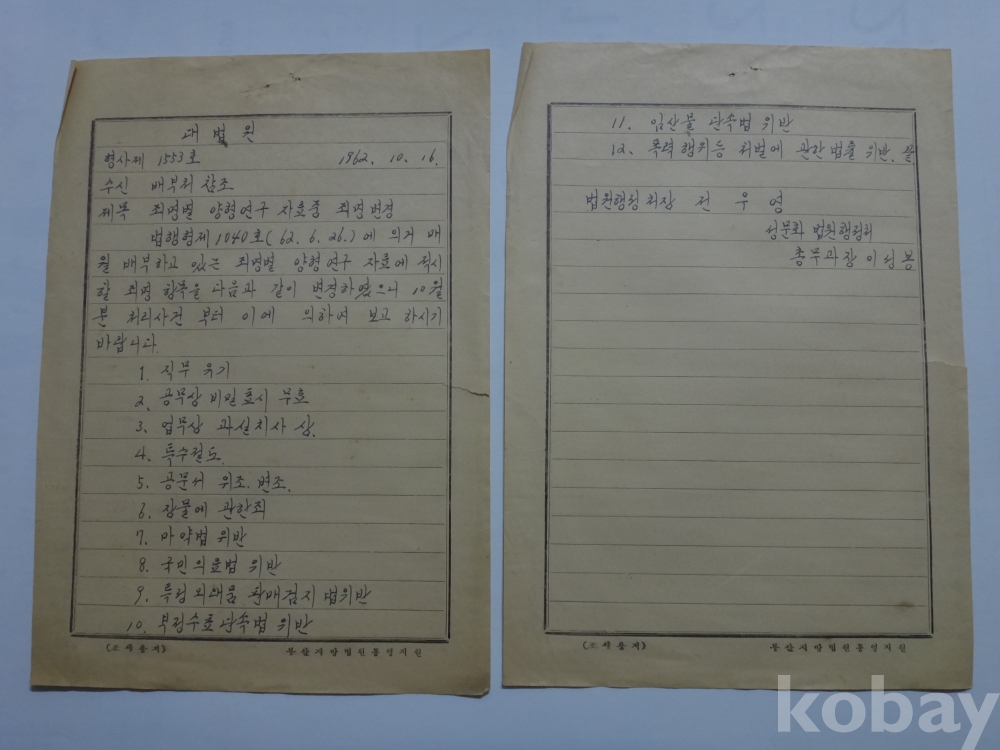 대법원
형사제 1553호 1962. 10. 16.
수신 배부처 참조
제목 죄명별 양형연구 자료중 죄명변경
법행형제1040호(62. 6. 26.)에 의거 매
월 배부하고 있는 죄명별 양형연구 자료에 적시
할 죄명 항목을 다음과 같이 변경하였으니 10월
분 처리사건 부터 이에 의하여 보고 하시기
바랍니다.
1. 직무유기
2. 공무상 비밀표시 무효
3. 업무상 과실치사 상.
4. 특수절도.
5. 공문서 위조. 변조.
6. 장물에 관한죄
7. 마약법 위반
8. 국민의료법 위반
9. 특정외래품 판매검지 법위반
10. 부정수표 단속법 위반
(조서용지) 부산지방법원통영지원
11. 임산물 단속법 위반
12. 폭력행위등 처벌에 관한 법률 위반. 끝.
법원행정처장 전우영
성문화 법원행정처
총무과장 이성봉
(조서용지) 부산지방법원통영지원
kobay